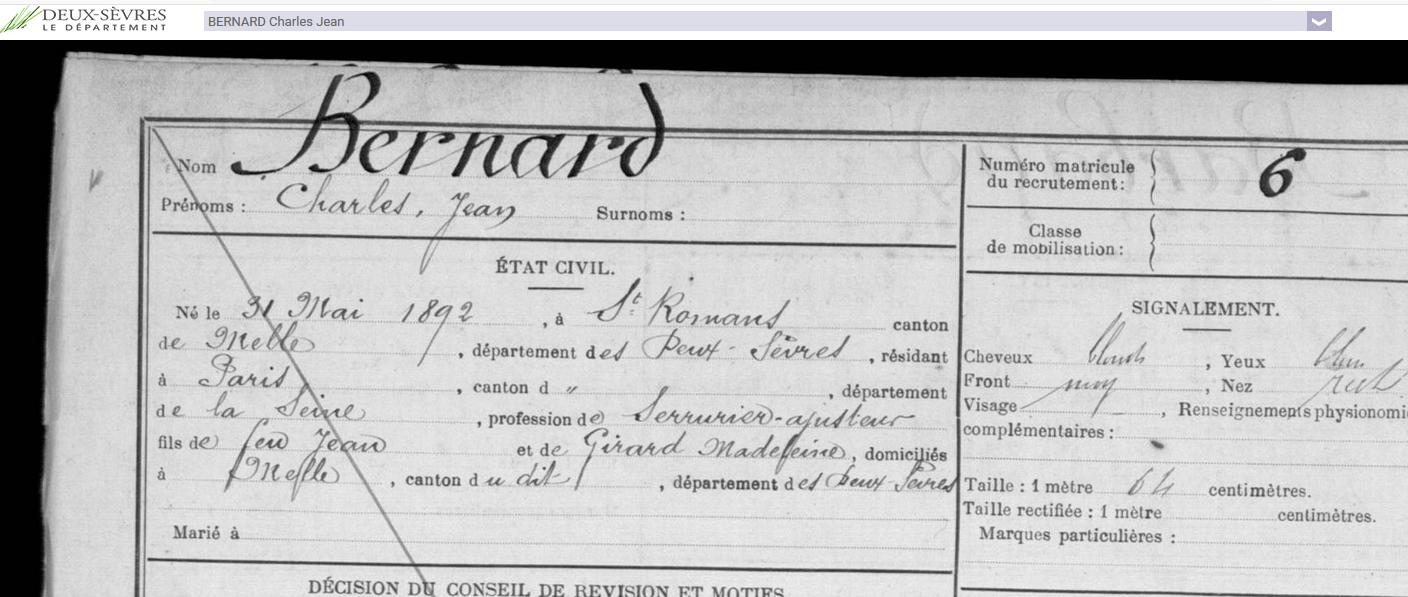 DEUX-SÈVRES
LE DÉPARTEMENT
BERNARD Charles Jean
Nom Bernard
Prénoms : Charles, Jean Surnoms :
Numéro matricule
du recrutement : 6
Classe
de mobilisation :
ÉTAT CIVIL.
Né le 31 Mai 1892, à St Romans canton
de Melle, département des Deux-Sèvres, résidant
à Paris, canton d ", département
de la Seine, profession de Serrurier-ajusteur
fils de feu Jean et de Girard Madeleine, domiciliés
à Melle, canton du dit, département des Deux-Sèvres
Marié à
SIGNALEMENT.
Cheveux blonds, Yeux bleus
Front moy, Nez rect
Visage, Renseignements physionomi
complémentaires :
Taille : 1 mètre 64 centimètres.
Taille rectifiée : 1 mètre centimètres.
Marques particulières :
DÉCISION DU CONSEIL DE REVISION ET MOTIFS.